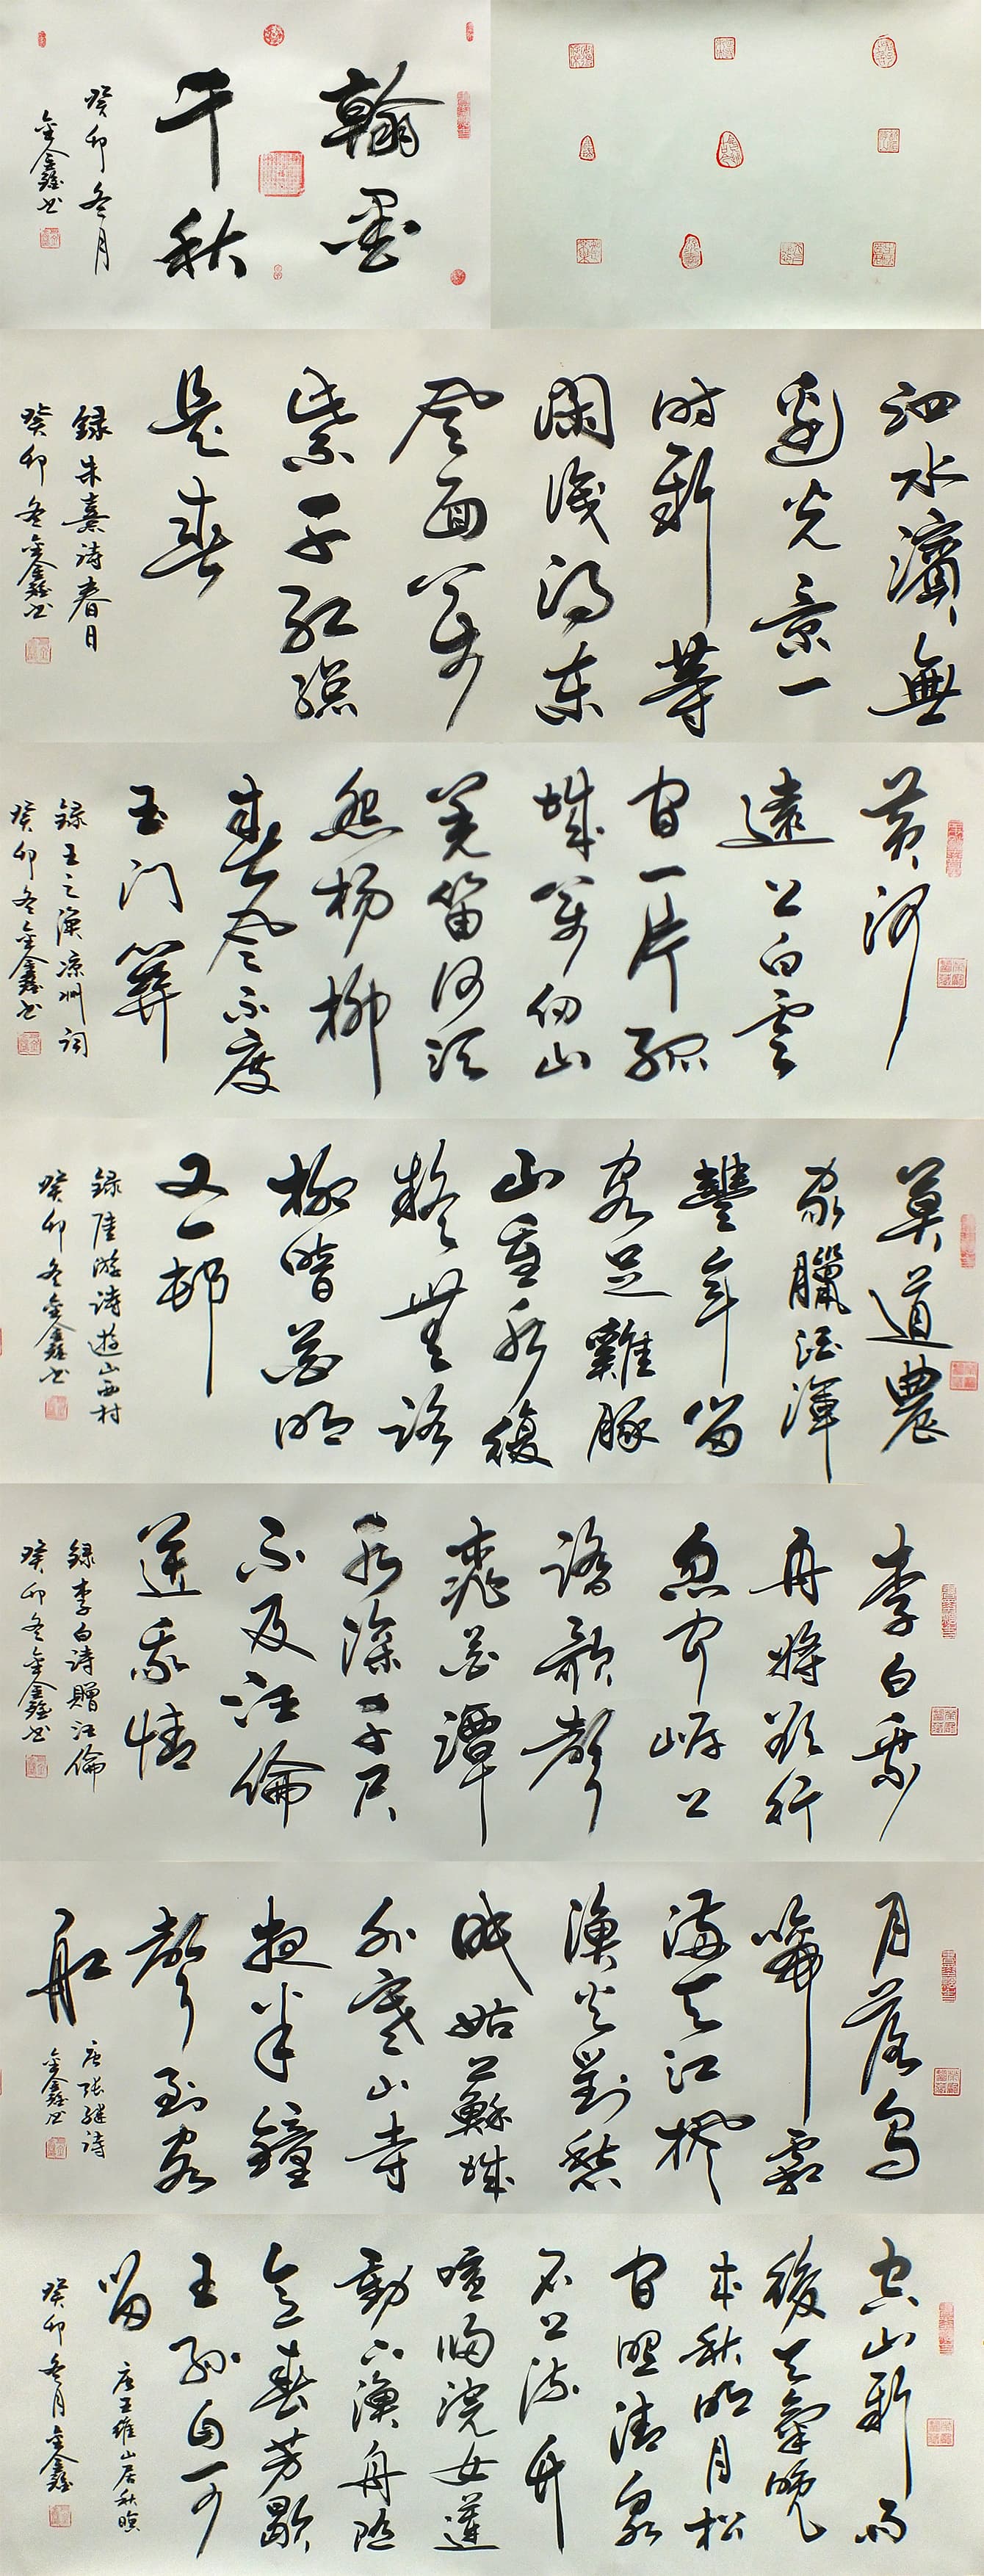 翰墨
千秋
癸卯冬月
金鑫书
泗水濱無
邊光景一
时新等
閑識得東
風面万
紫千红總
是春
録朱熹诗春日
癸卯冬金鑫书
黄河
遠上白雲
间一片孤
城万仞山
羌笛何须
怨杨柳
春风不度
玉门關
録王之涣凉州词
癸卯冬金鑫书
莫道農
家臘酒渾
豐年留
客足雞豚
山重水複
疑無路
柳暗花明
又一邨
録陸游诗遊山西村
癸卯冬金鑫书
李白乘
舟將欲行
忽闻岸上
踏歌聲
桃花潭
水深千尺
不及汪倫
送我情
録李白诗贈汪倫
癸卯冬金鑫书
月落烏
啼霜
滿天江枫
渔火對愁
眠姑蘇城
外寒山寺
夜半鐘
聲到客
船
唐张继诗
金鑫书
空山新雨
後天氣晚
来秋明月松
间照清泉
石上流竹
喧归浣女莲
動下渔舟随
意春芳歇
王孙自可
留
唐王維山居秋暝
癸卯冬月金鑫